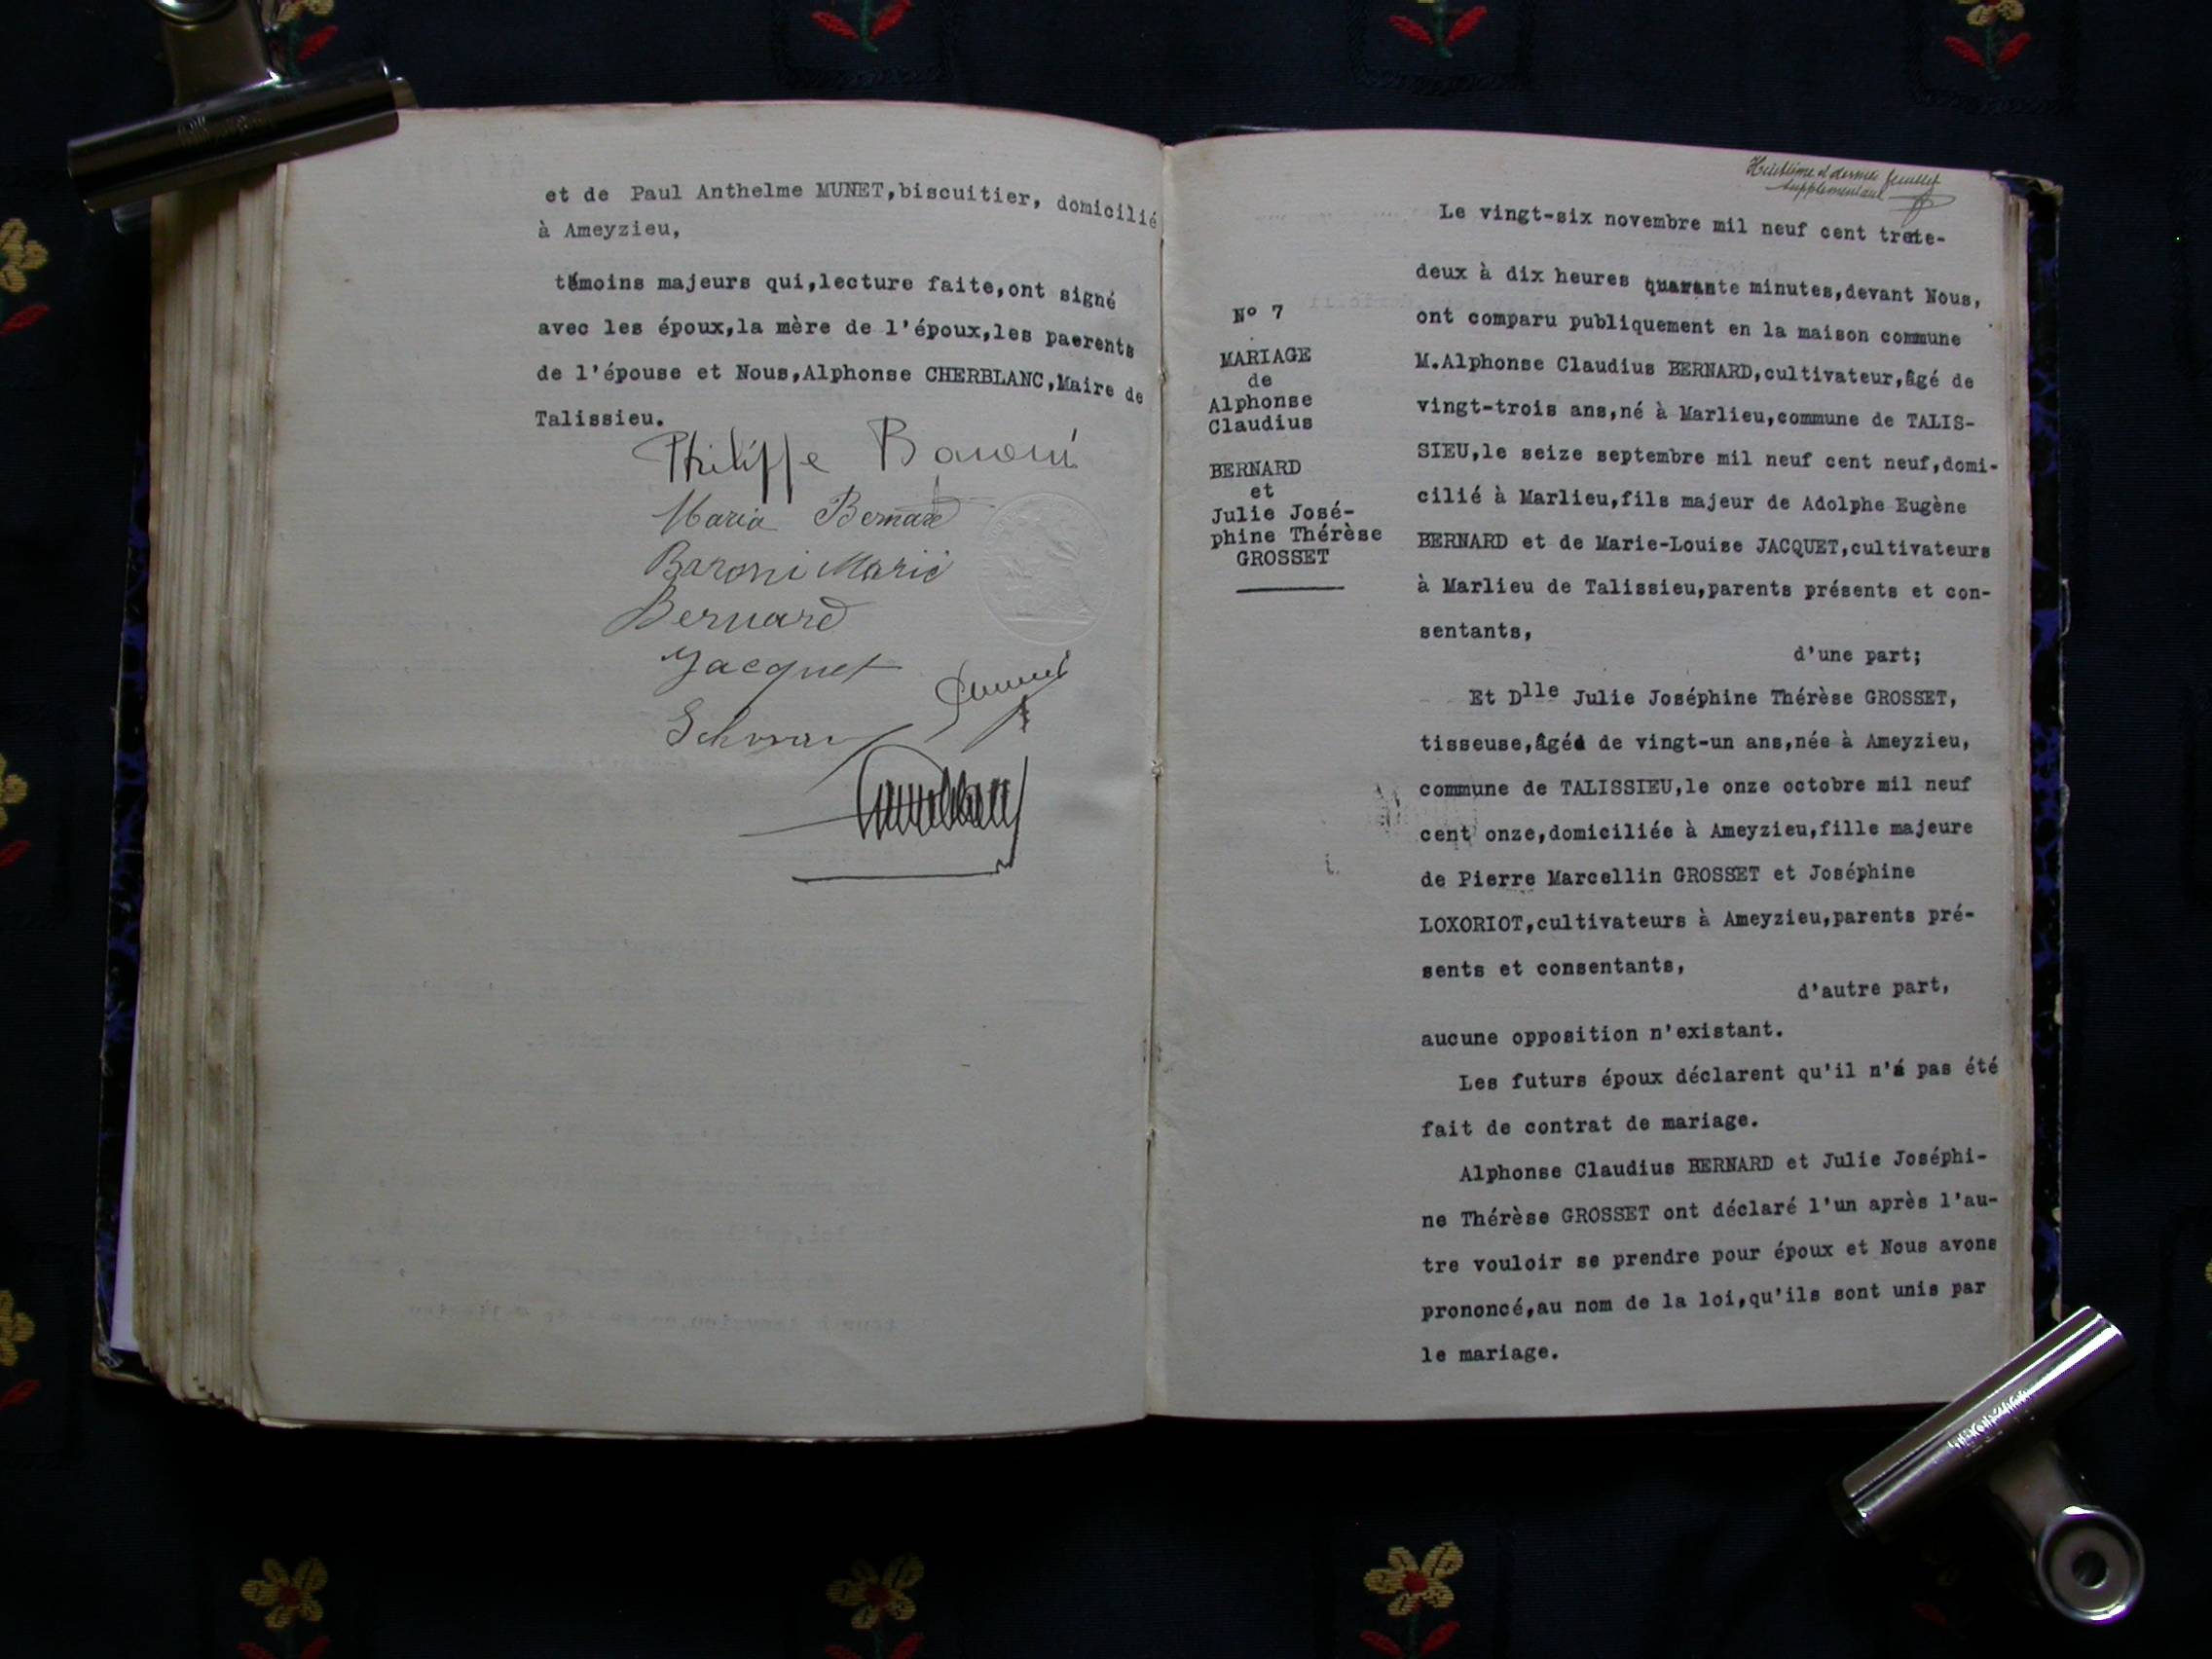 et de Paul Anthelme MUNET,biscuitier, domicilié
à Ameyzieu,
témoins majeurs qui,lecture faite,ont signé
avec les époux,la mère de l'époux,les paerents
de l'épouse et Nous,Alphonse CHERBLANC,Maire de
Talissieu.
Philippe Baroni
Maria Bernard
Baroni Marie
Bernard
Jacquet
Huitième et dernier feuillet
supplémentaire
N° 7
MARIAGE
de
Alphonse
Claudius
BERNARD
et
Julie José-
phine Thérèse
GROSSET
Le vingt-six novembre mil neuf cent trete-
deux à dix heures quarante minutes,devant Nous,
ont comparu publiquement en la maison commune
M.Alphonse Claudius BERNARD,cultivateur,âgé de
vingt-trois ans,né à Marlieu,commune de TALIS-
SIEU,le seize septembre mil neuf cent neuf,domi-
cilié à Marlieu,fils majeur de Adolphe Eugène
BERNARD et de Marie-Louise JACQUET,cultivateurs
à Marlieu de Talissieu,parents présents et con-
sentants,
d'une part;
Et Dlle Julie Joséphine Thérèse GROSSET,
tisseuse,âgée de vingt-un ans,née à Ameyzieu,
commune de TALISSIEU,le onze octobre mil neuf
cent onze,domiciliée à Ameyzieu,fille majeure
de Pierre Marcellin GROSSET et Joséphine
LOXORIOT,cultivateurs à Ameyzieu,parents pré-
sents et consentants,
d'autre part,
aucune opposition n'existant.
Les futurs époux déclarent qu'il n'a pas été
fait de contrat de mariage.
Alphonse Claudius BERNARD et Julie Joséphi-
ne Thérèse GROSSET ont déclaré l'un après l'au-
tre vouloir se prendre pour époux et Nous avons
prononcé,au nom de la loi,qu'ils sont unis par
le mariage.